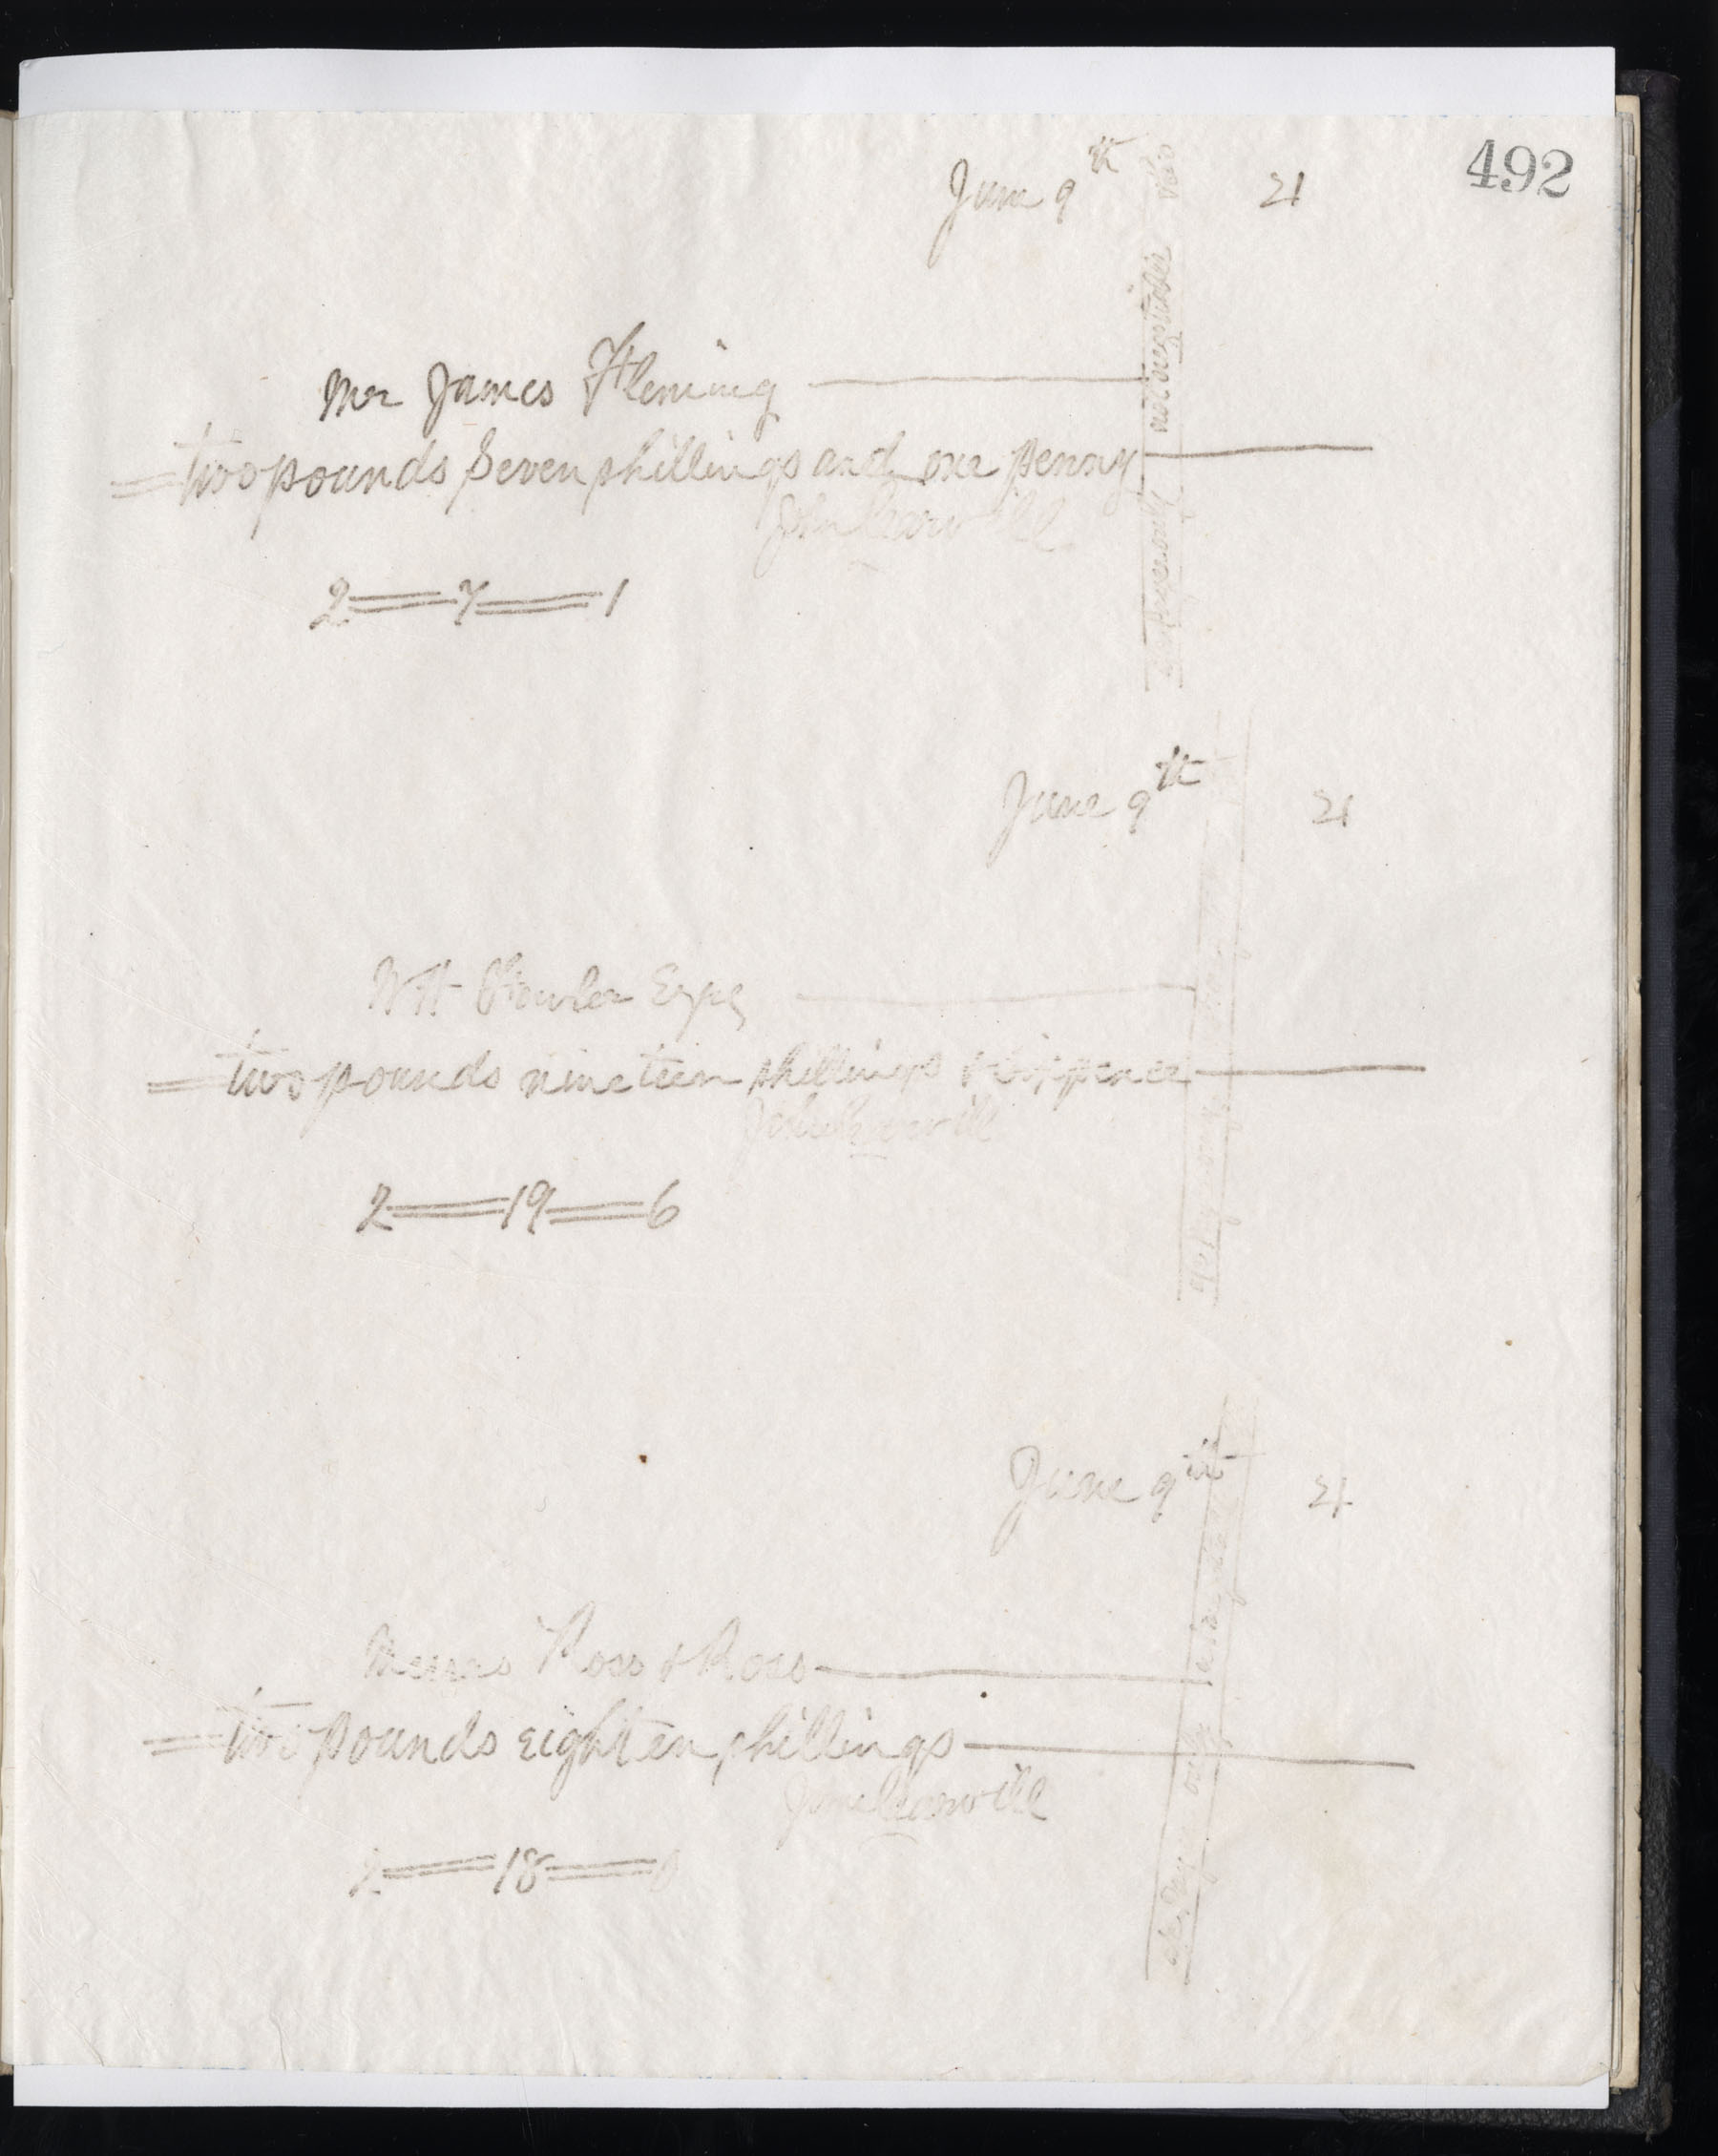 492
June 9th 21
not negotiable
Mr James Fleming
two pounds Seven shillings and one penny
John
2 = 7 = 1
June 9th 21
WH Esqe
two pounds nineteen shillings & Sixpence
John
2 = 19 = 6
June 9th 21
Messrs Ross & Ross
two pounds eighten shillings
2 = 18 = 0